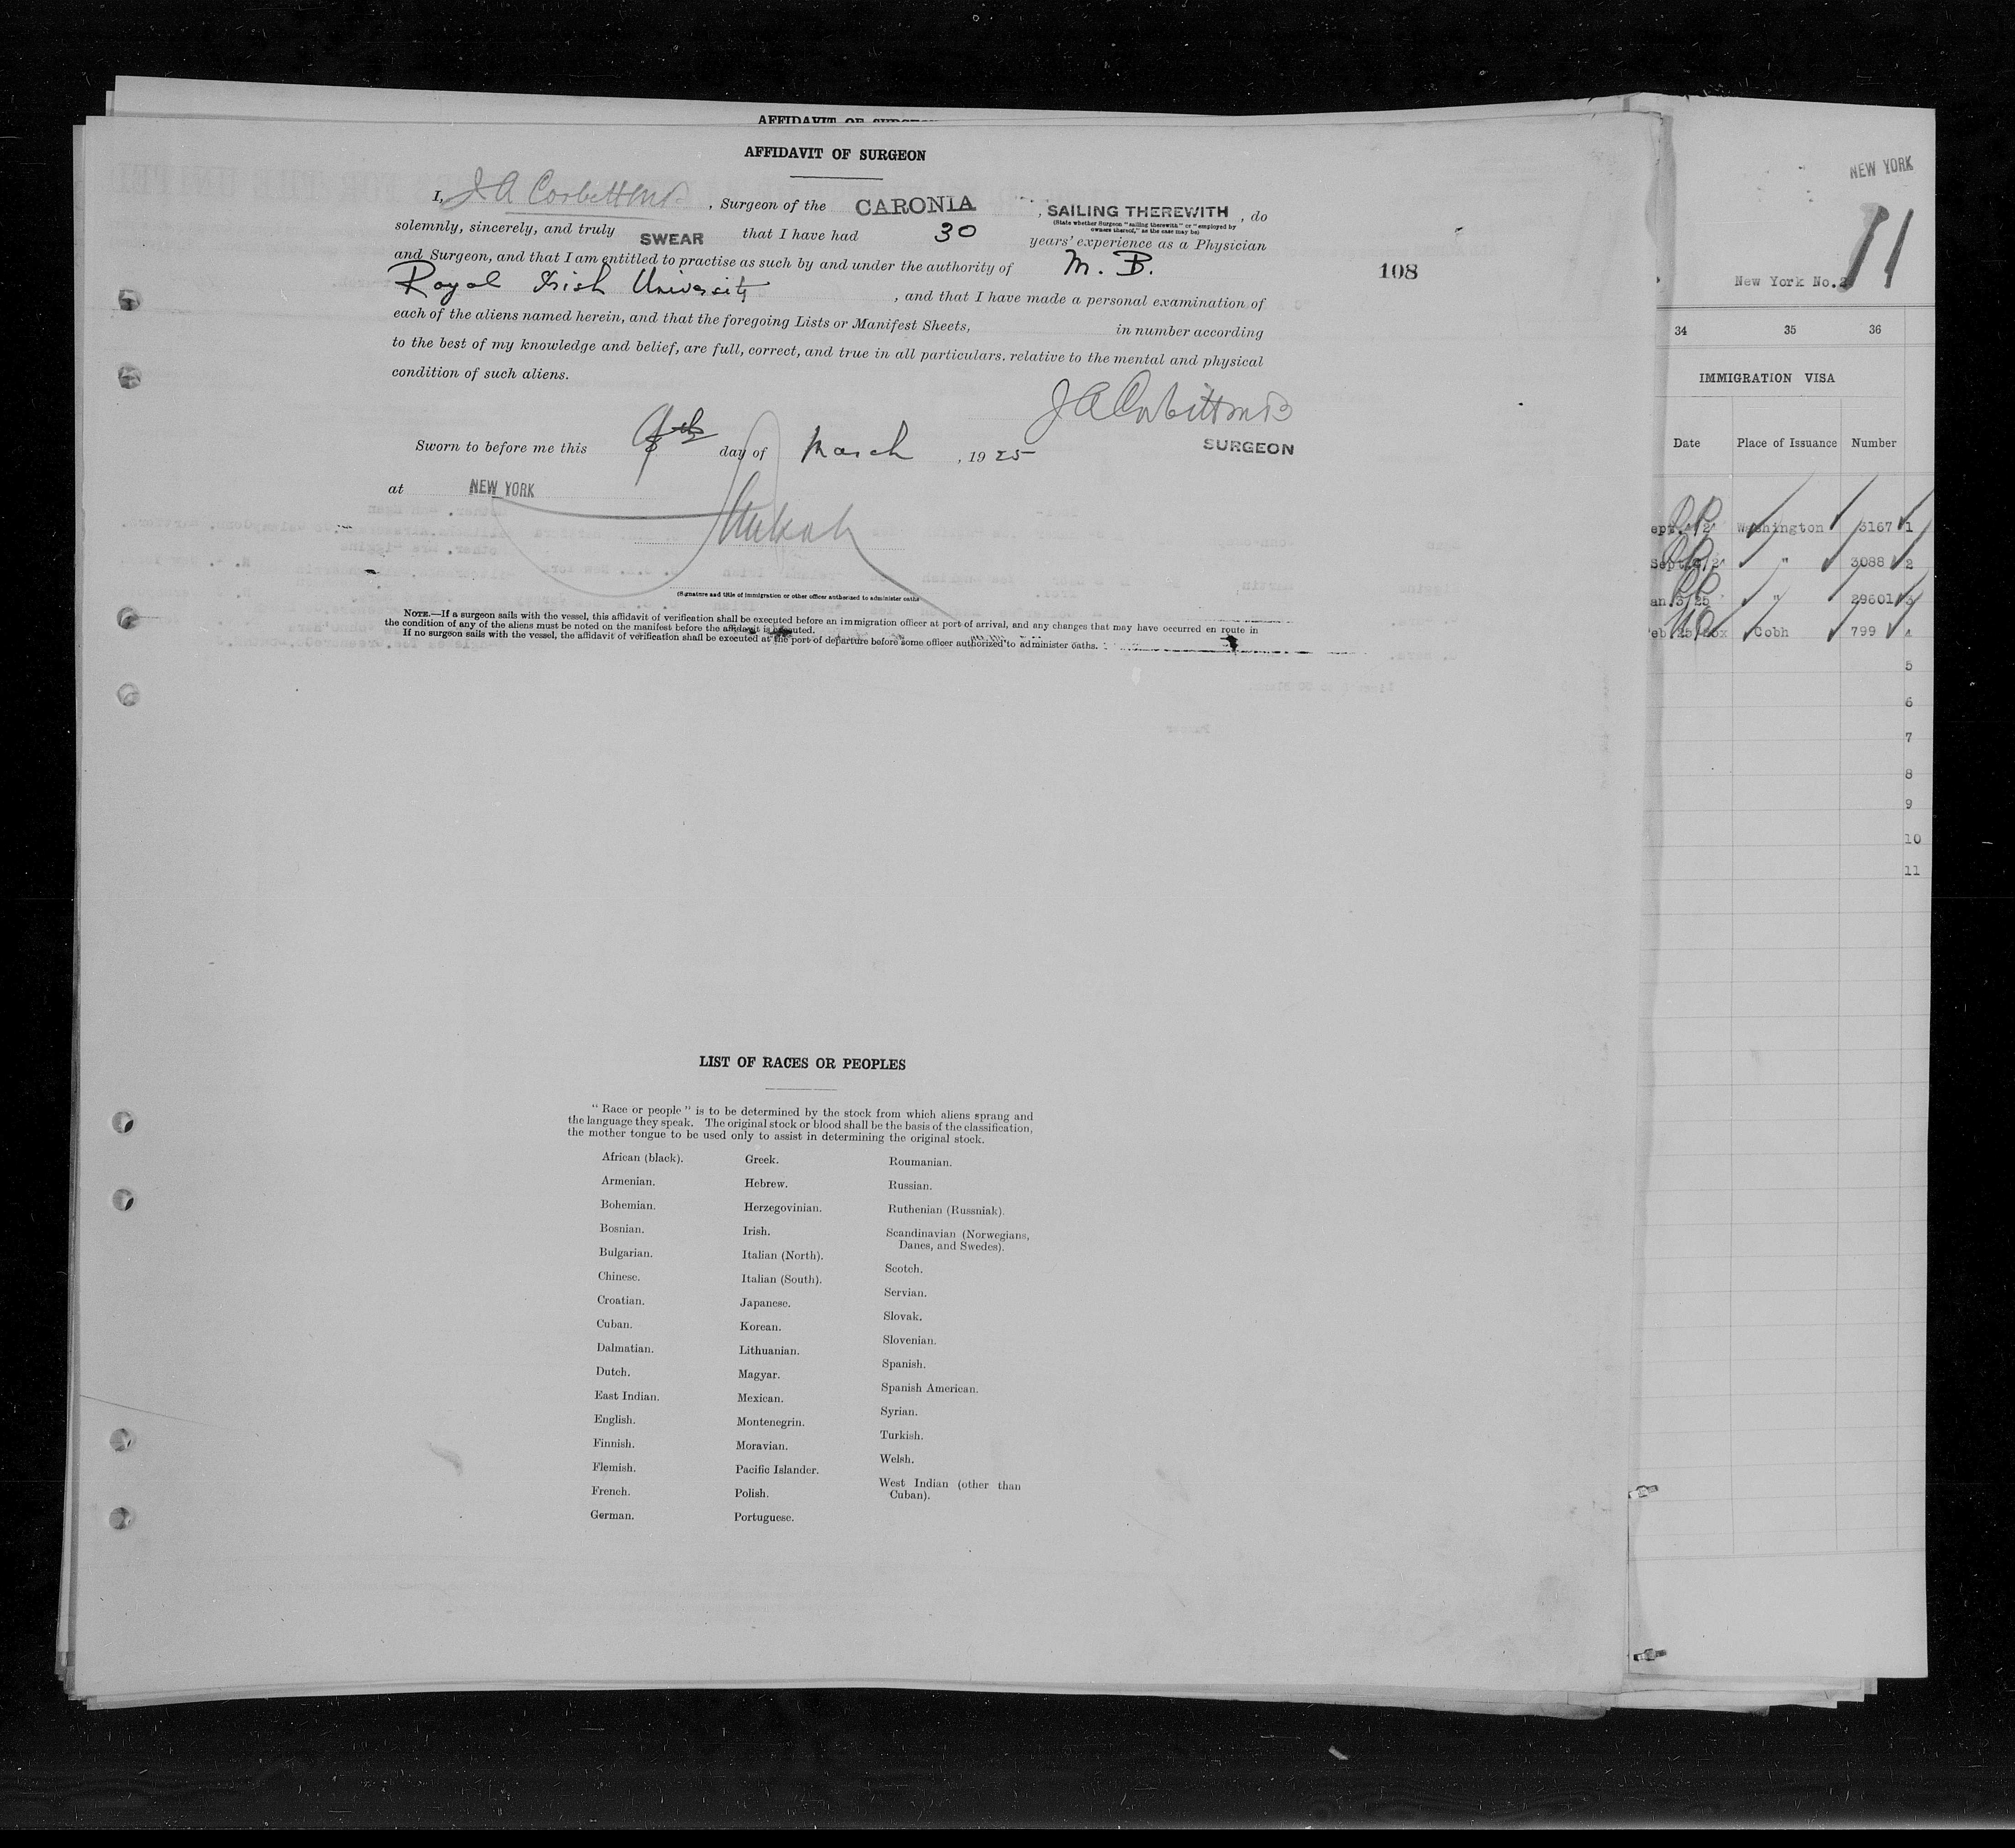 AFFIDAVIT OF SURGEON
AFFIDAVIT OF SURGEON
I, J A Corbett M B , Surgeon of the CARONIA , SAILING THEREWITH , do
(State whether Surgeon "sailing therewith" or "employed by
owners thereof," as the case may be)
solemnly, sincerely, and truly SWEAR that I have had 30 years' experience as a Physician
and Surgeon, and that I am entitled to practise as such by and under the authority of M. B.
Royal Irish University , and that I have made a personal examination of
each of the aliens named herein, and that the foregoing Lists or Manifest Sheets, in number according
to the best of my knowledge and belief, are full, correct, and true in all particulars. relative to the mental and physical
condition of such aliens.
J A Corbett M B
SURGEON
Sworn to before me this day of March , 19 25
at NEW YORK
(Signature and title of immigration or other officer authorized to administer oaths
NOTE.—If a surgeon sails with the vessel, this affidavit of verification shall be executed before an immigration officer at port of arrival, and any changes that may have occurred en route in
the condition of any of the aliens must be noted on the manifest before the affidavit is executed.
If no surgeon sails with the vessel, the affidavit of verification shall be executed at the port of departure before some officer authorized to administer oaths.
108
LIST OF RACES OR PEOPLES
"Race or people" is to be determined by the stock from which aliens sprang and
the language they speak. The original stock or blood shall be the basis of the classification,
the mother tongue to be used only to assist in determining the original stock.
African (black).
Armenian.
Bohemian.
Bosnian.
Bulgarian.
Chinese.
Croatian.
Cuban.
Dalmatian.
Dutch.
East Indian.
English.
Finnish.
Flemish.
French.
German.
Greek.
Hebrew.
Herzegovinian.
Irish.
Italian (North).
Italian (South).
Japanese.
Korean.
Lithuanian.
Magyar.
Mexican.
Montenegrin.
Moravian.
Pacific Islander.
Polish.
Portuguese.
Roumanian.
Russian.
Ruthenian (Russniak).
Scandinavian (Norwegians,
Danes, and Swedes).
Scotch.
Servian.
Slovak.
Slovenian.
Spanish.
Spanish American.
Syrian.
Turkish.
Welsh.
West Indian (other than
Cuban).
NEW YORK
11
New York No.
34 35 36
IMMIGRATION VISA
Date Place of Issuance Number
Washington 3167 1
" 3088 2
" 29601 3
Cobh 799 4
5
6
7
8
9
10
11